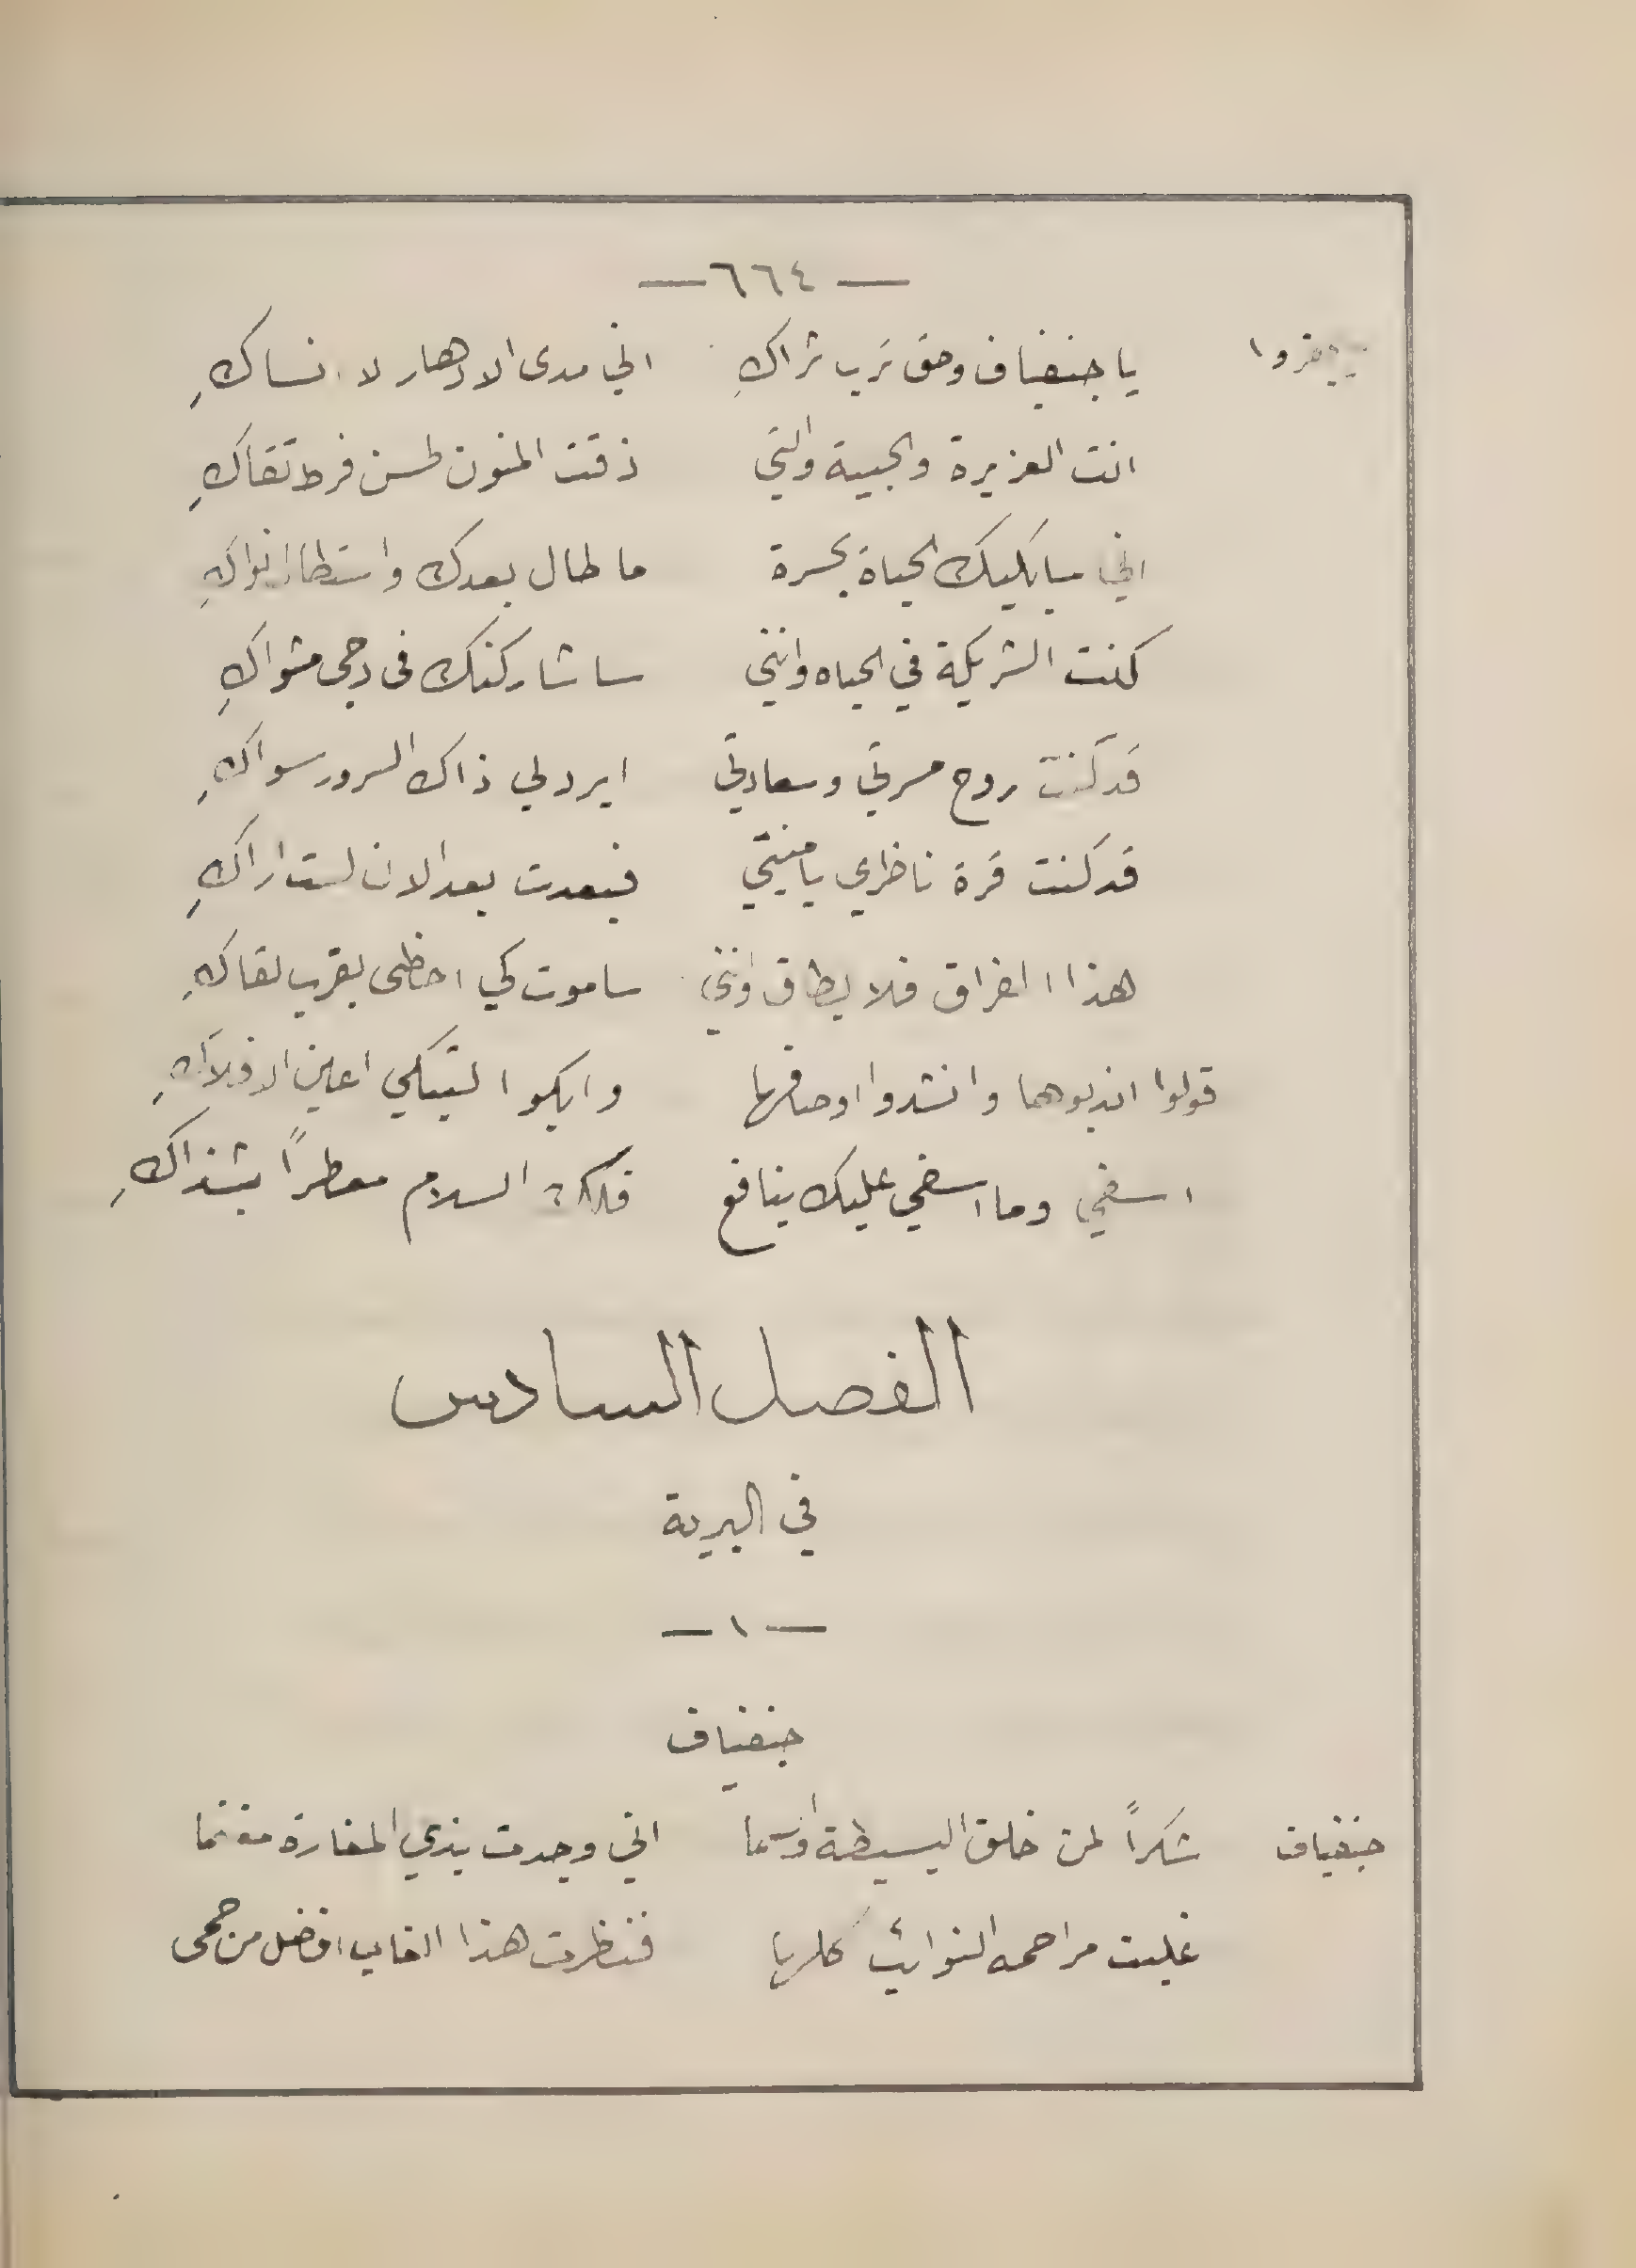 — ٦٦٤ —
يا جنفياف وحق ترب ثراكِ اني مدى الادهار لا انساكِ
انت العزيزة والحبيبة والتي ذقت المنون لحسن فرط تقاكِ
اني سابكيك الحياة بحسرة ما طال بعدك واستطال نواكِ
كنت الشريكة في الحياه وانني ساشاركنك فى دجى مثواكِ
قد كنت روح مسرتي وسعادتي ايرد لي ذاك السرور سواكِ
قد كنت قرة ناظري يا منيتي فبعدت بعد الان لست اراكِ
هذا الفراق فلا يطاق وانني ساموت كي احظى بقرب لقاكِ
قولوا اندبوها وانشدوا اوصافها وابكوا لتبكي اعين الافلاكِ
اسفي وما اسفي عليك بنافع فلك السلام معطراً بشذاكِ
الفصل السادس
في البرية
— ١ —
جنفياف
جنفياف شكراً لمن خلق البسيطة والسما اني وجدت بذي المغارة مغنما
غلبت مراحمه النوائب كلها فنظرت هذا الغاب افضل من حمى